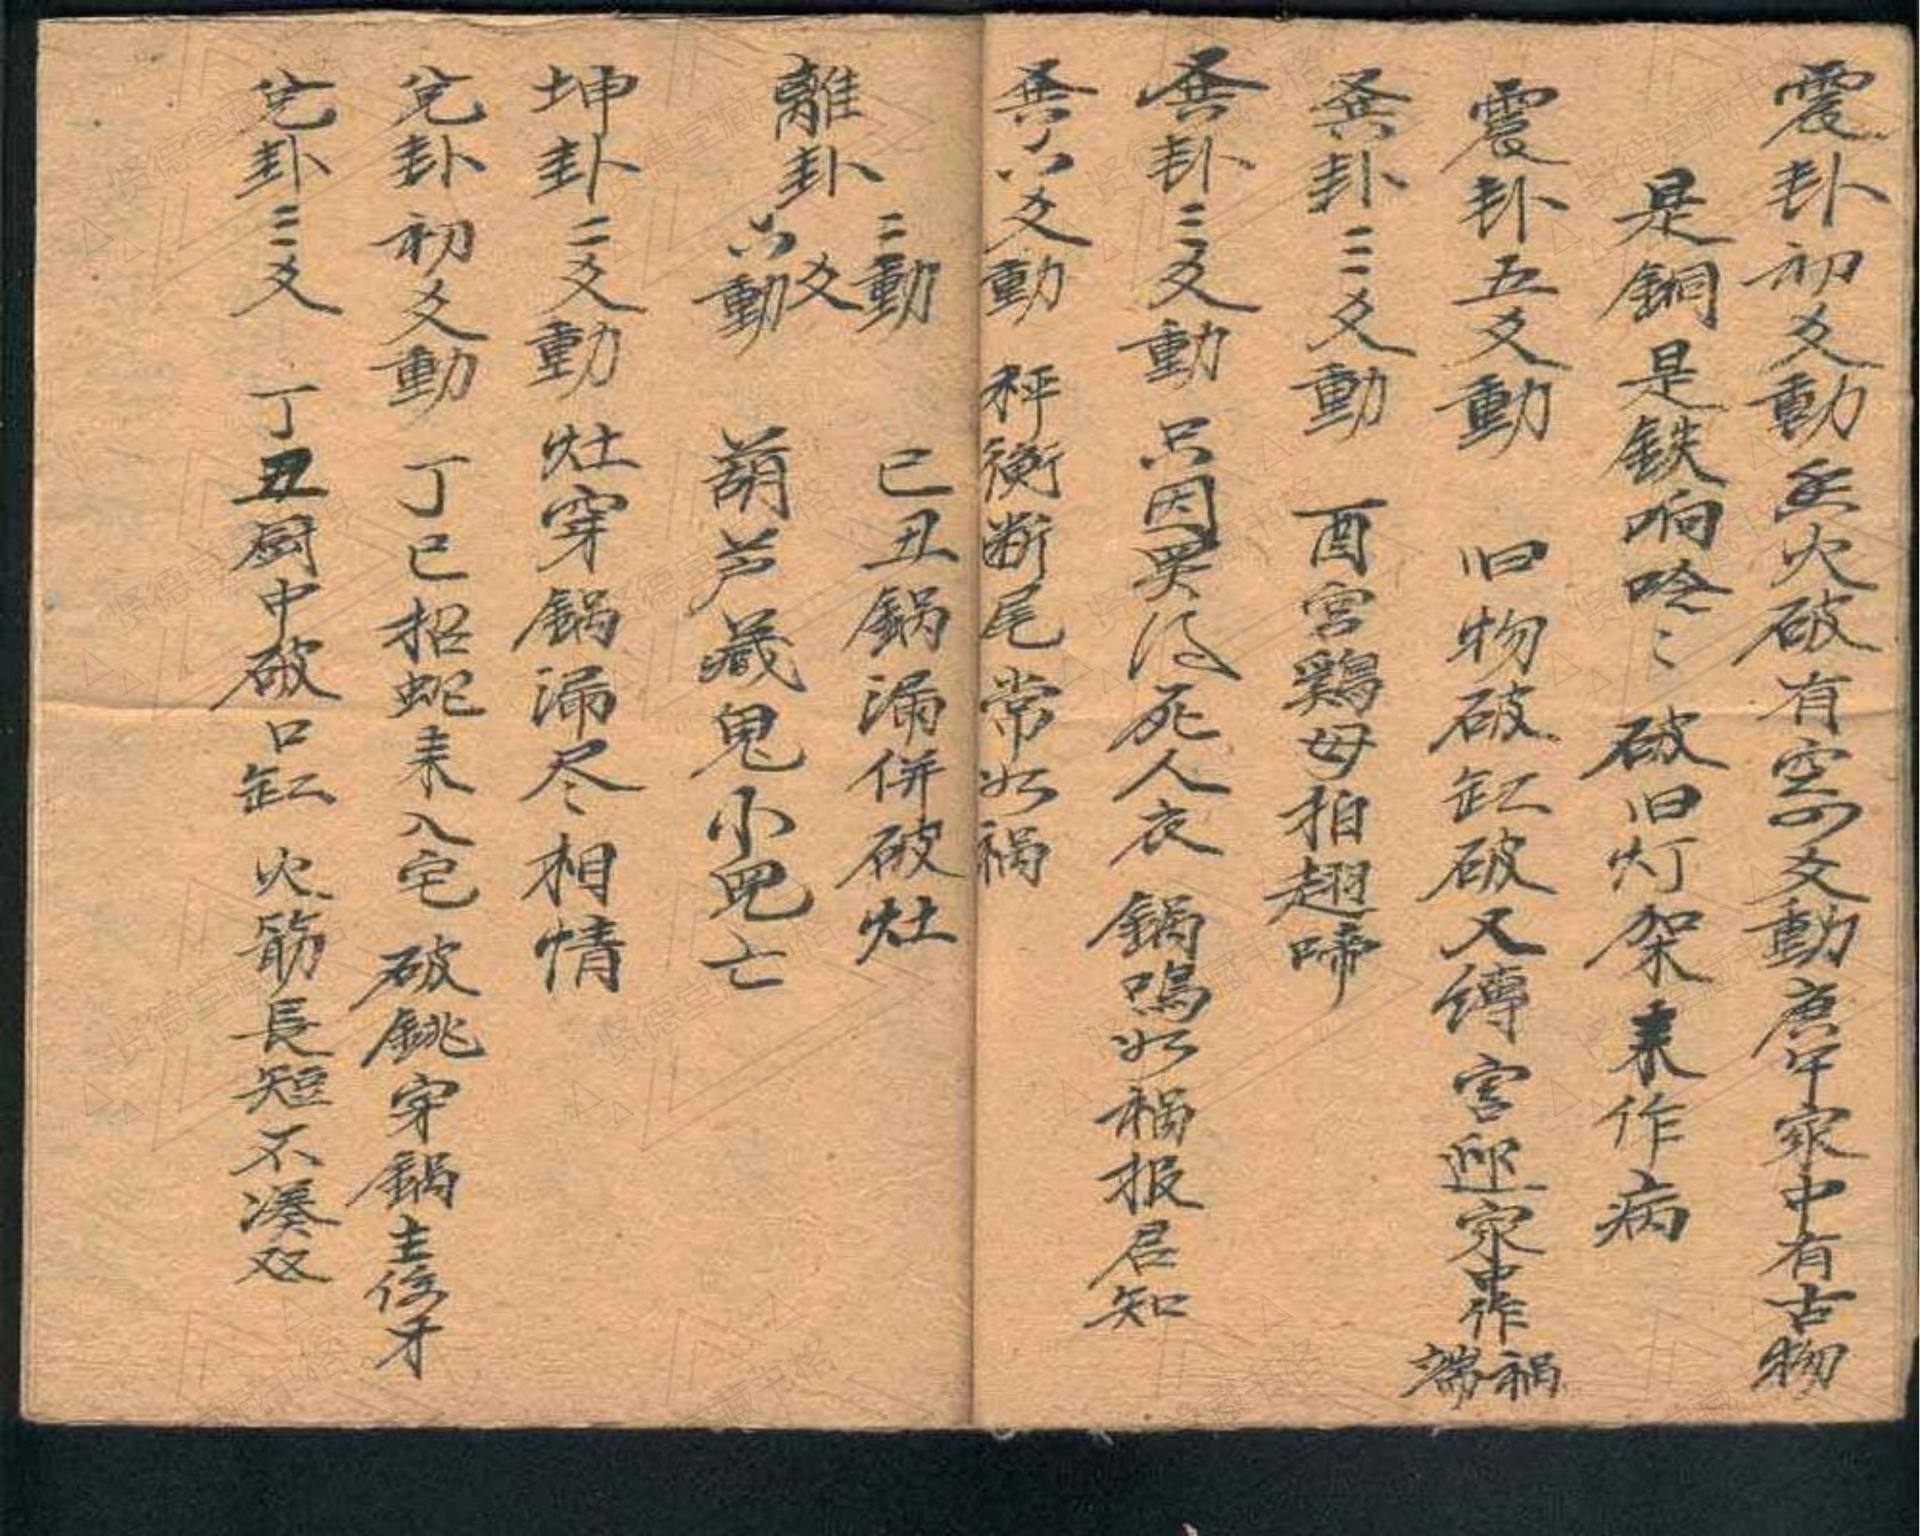 震卦初爻動 火破有空 爻動庚午家中有古物
是銅是鉄响唥々破旧灯架来作病
震卦五爻動 旧物破缸破又縛宫迎家中作禍端
巽卦三爻動 酉宫鷄母拍翅啼
巽卦三爻動 只因哭 死人衣 鍋鳴必禍报君知
巽六爻動 秤衡断尾常必禍
離卦二動 六爻動
已丑鍋漏併破灶
葫芦藏鬼小児亡
坤卦二爻動 灶穿鍋漏尽相情
兌卦初爻動 丁巳招蛇来入宅 破銚穿鍋主 牙
兌卦二爻 丁丑厨中破口缸 火筋長短不湊双